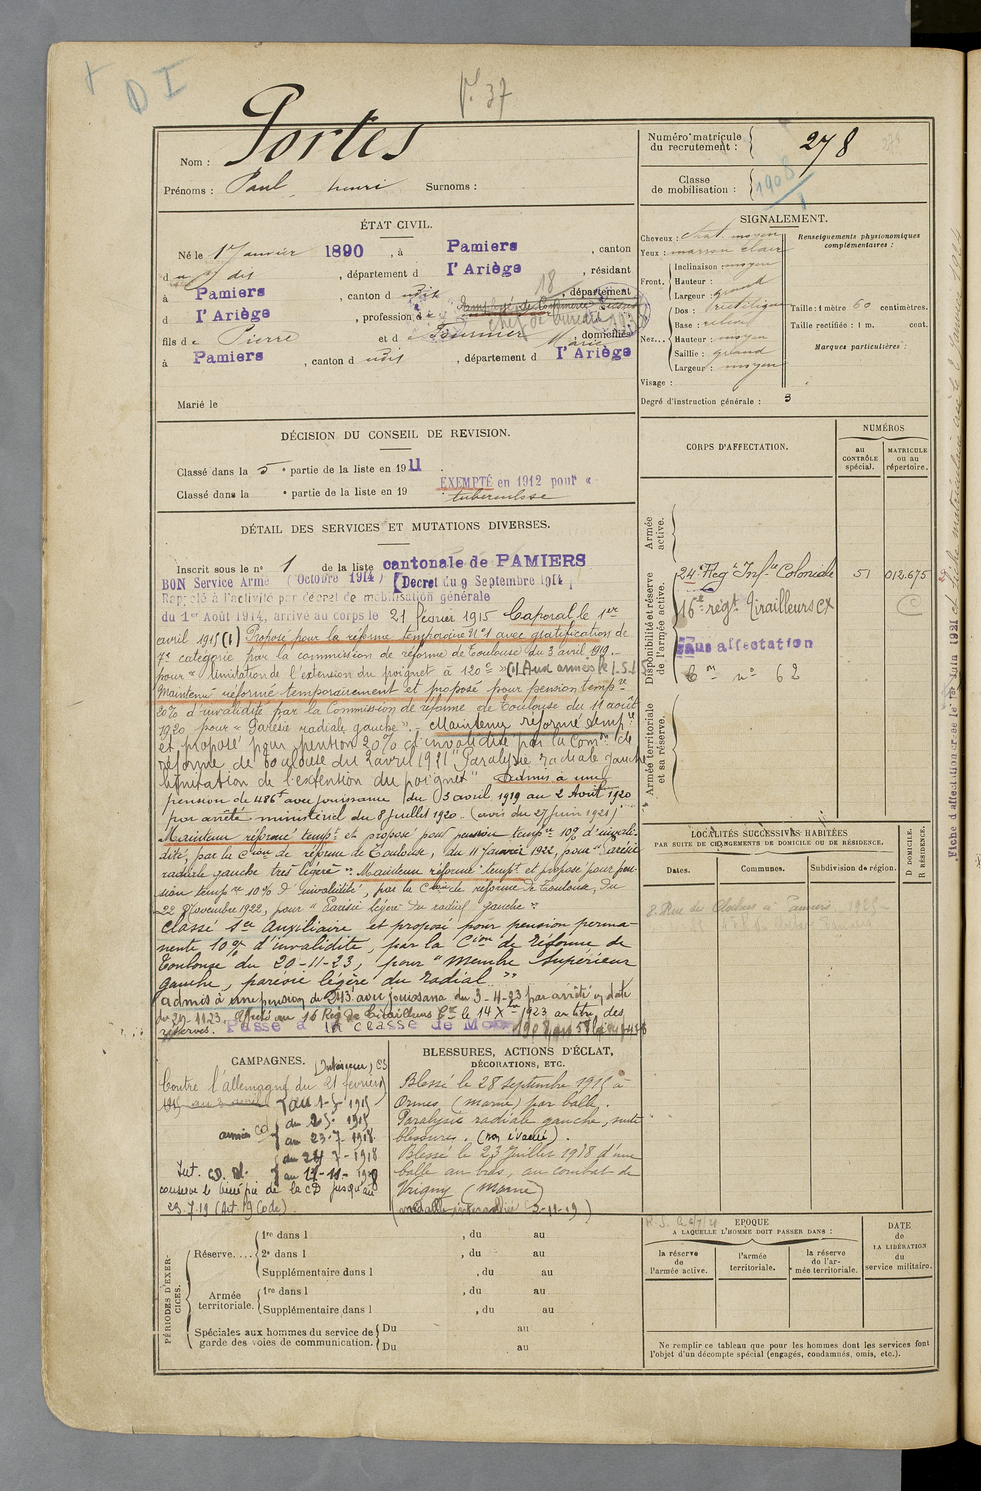 D I
P. 37
Nom : Portes
Prénoms : Paul henri Surnoms :
Numéro matricule du recrutement : 278
Classe de mobilisation : 1908
ÉTAT CIVIL.
Né le 1 Janvier 1890, à Pamiers, canton
d des, département d l'Ariège, résidant
à Pamiers, canton d udit, département
d l'Ariège, profession d
chef de bureau
fils de Pierre et de Fournier Marie, domiciliés
à Pamiers, canton d udit, département d l'Ariège
Marié le
SIGNALEMENT.
Cheveux : chat. moyen
Yeux : marron clair
Front. Inclinaison : moyen
Hauteur : grand
Largeur : grand
Nez... Dos : rectiligne
Base : relevé
Hauteur : moyen
Saillie : grand
Largeur : moyen
Visage :
Renseignements physionomiques complémentaires :
Taille : 1 mètre 60 centimètres.
Taille rectifiée : 1 m. cent.
Marques particulières :
Degré d'instruction générale : 3
DÉCISION DU CONSEIL DE REVISION.
Classé dans la 5e partie de la liste en 1911.
Classé dans la e partie de la liste en 19
EXEMPTÉ en 1912 pour "
tuberculose
DÉTAIL DES SERVICES ET MUTATIONS DIVERSES.
Inscrit sous le no 1 de la liste cantonale de PAMIERS
BON Service Armé (Octobre 1914) [Décret du 9 Septembre 1914]
Rappelé à l'activité par décret de mobilisation générale
du 1er Août 1914, arrivé au corps le 21 février 1915 Caporal le 1er
avril 1915 (1) Proposé pour la réforme temporaire No 1 avec gratification de
7e catégorie par la commission de réforme de Toulouse du 3 avril 1919.
pour "limitation de l'extension du poignet à 120°" (1) Aux armées le 1.5.15
Maintenu réformé temporairement et proposé pour pension tempre
20% d'invalidité par la Commission de réforme de Toulouse du 11 août
1920 pour "Parésie radiale gauche". Maintenu réformé tempre
et proposé pour pention 20% d'invalidité par la Comon de
réforme de Toulouse du 2 avril 1921 "Paralysie radiale gauche
limitation de l'extention du poignet" Admis à une
pension de 486f avec jouissance du 3 avril 1919 au 2 Août 1920
par arrêté ministériel du 8 juillet 1920. (avis du 27 juin 1921)
Maintenu réformé tempre et proposé pour pension tempre 10% d'invali-
dité, par la Cion de réforme de Toulouse, du 11 Janvier 1922, pour "Parésie
radiale gauche très légère". Maintenu réformé tempre et proposé pour pen-
sion tempre 10% d'invalidité, par la Cion de réforme de Toulouse, du
22 Novembre 1922, pour "Parésie légère du radial gauche"
Classé sce Auxiliaire et proposé pour pension perma-
nente 10% d'invalidité, par la Cion de Réforme de
Toulouse du 20-11-23, pour "Membre supérieur
gauche, parésie légère du radial"
admis à une pension de 243f avec jouissance du 3-4-23 par arrêté en date
du 29-11-23. Affecté au 16 Rég. de Tirailleurs Cx le 14 Xbre 1923 au titre des
réserves. Passé à la classe de Mob 1908
CORPS D'AFFECTATION.
NUMÉROS
au CONTRÔLE spécial.
MATRICULE ou au répertoire.
Armée active.
Disponibilité et réserve de l'armée active.
24e Regt Infie Coloniale 51 012.675
16e régt Tirailleurs cx
Sans affectation
C m no 62
Armée territoriale et sa réserve.
LOCALITÉS SUCCESSIVES HABITÉES
PAR SUITE DE CHANGEMENTS DE DOMICILE OU DE RÉSIDENCE.
Dates. Communes. Subdivision de région.
D DOMICILE.
R RÉSIDENCE.
CAMPAGNES.
Intérieur, CS
Contre l'allemagne du 21 février
au 1-5-1915
armées CD du 2.5.1915
au 23-7-1918
du 24-7-1918
Int. CD. au 17-11-1918
conserve le bénéfice de la CD jusqu'au
23-7-19 (Art 19 Code)
BLESSURES, ACTIONS D'ÉCLAT,
DÉCORATIONS, ETC.
Blessé le 28 Septembre 1915 à
Ormes (marne) par balle.
Paralysie radiale gauche, suite
blessures. (non évacué).
Blessé le 23 Juillet 1918 d'une
balle au bras, au combat de
Vrigny (Marne)
PÉRIODES D'EXERCICES.
Réserve.... 1re dans l , du au
2e dans l , du au
Supplémentaire dans l , du au
Armée territoriale. 1re dans l , du au
Supplémentaire dans l , du au
Spéciales aux hommes du service de garde des voies de communication. Du au
Du au
EPOQUE
A LAQUELLE L'HOMME DOIT PASSER DANS :
la réserve de l'armée active.
l'armée territoriale.
la réserve de l'armée territoriale.
DATE de LA LIBÉRATION du service militaire.
Ne remplir ce tableau que pour les hommes dont les services font
l'objet d'un décompte spécial (engagés, condamnés, omis, etc.).